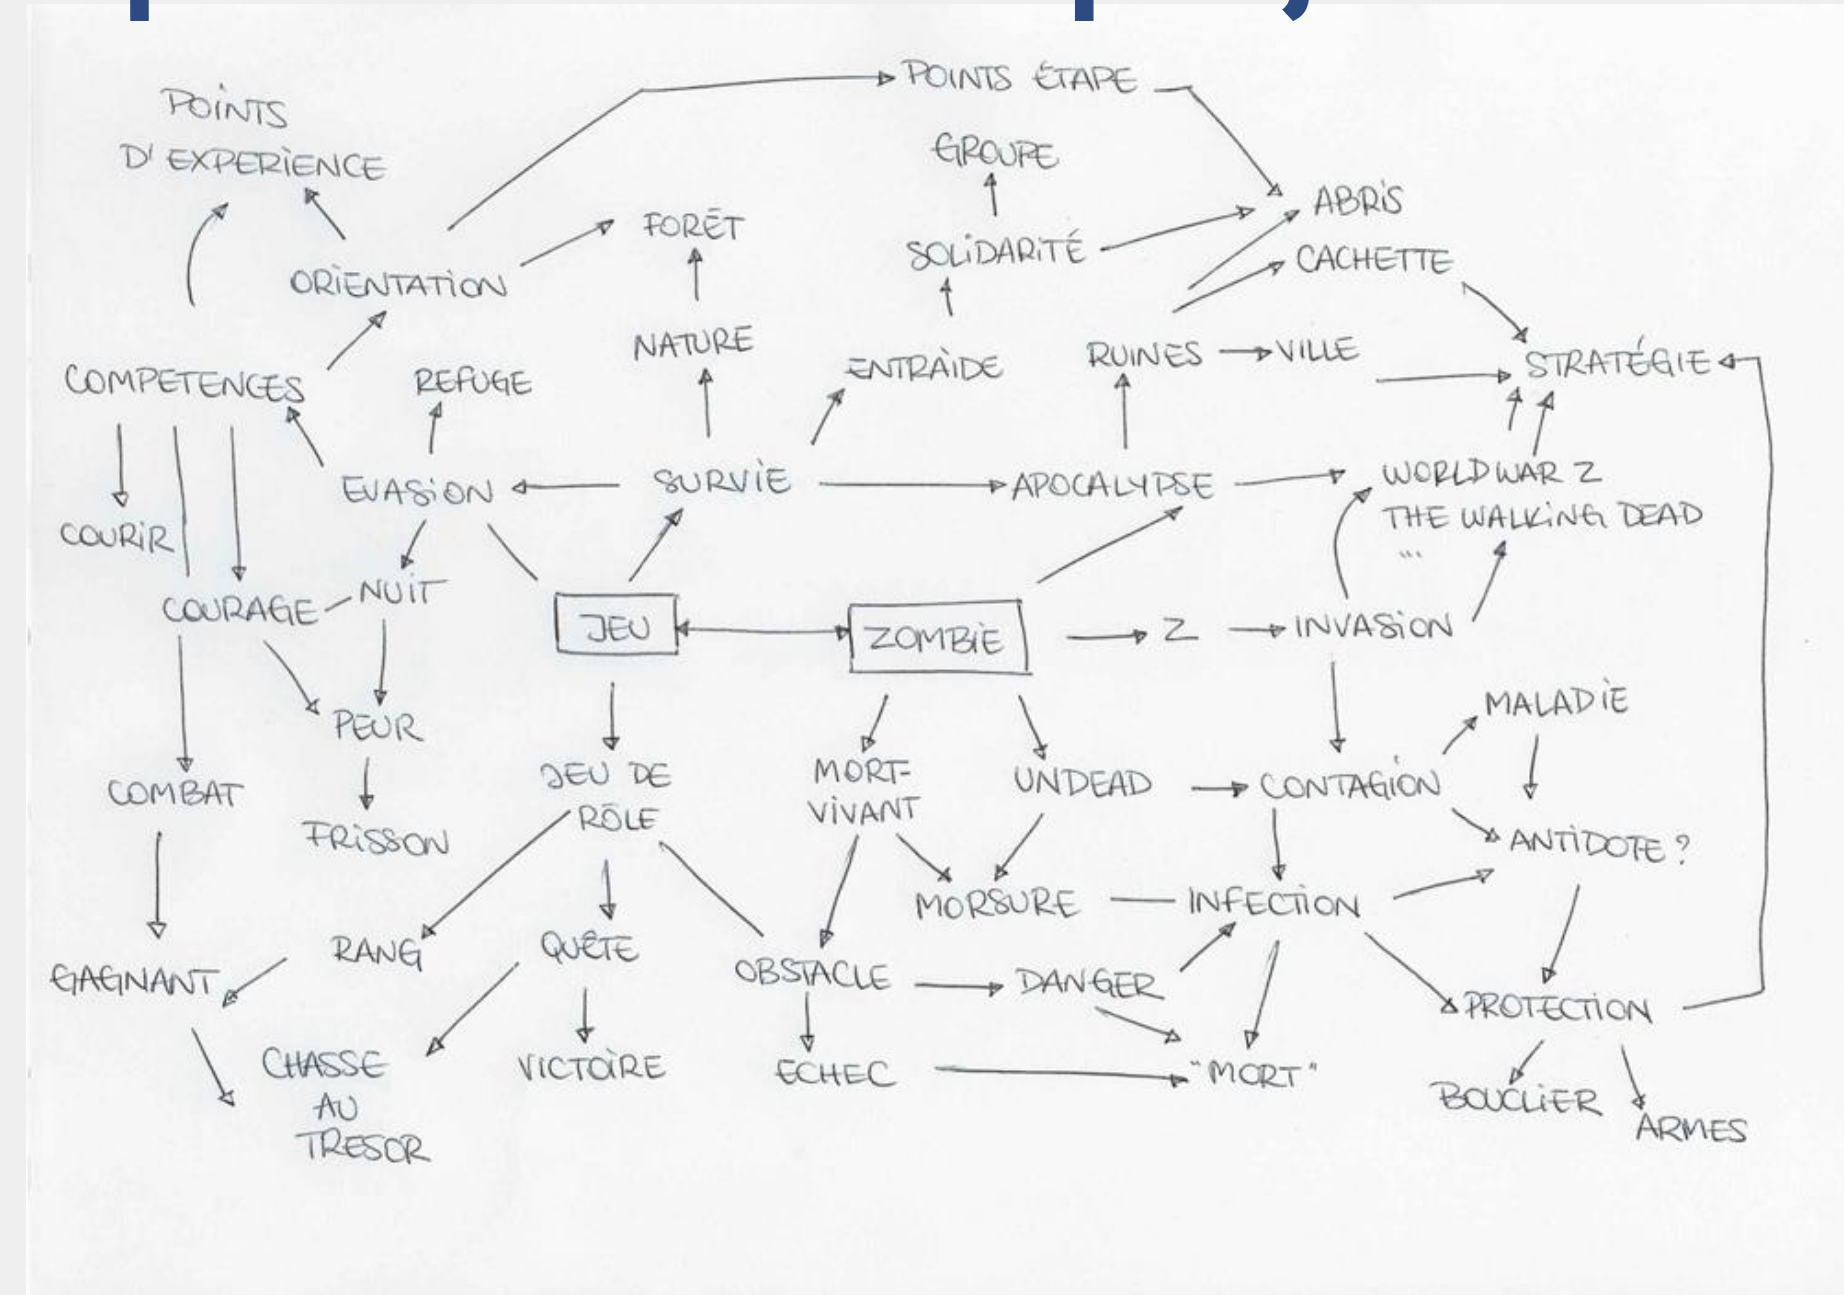 POINTS ÉTAPE
POINTS
D'EXPERIENCE
GROUPE
ABRIS
FORÊT
SOLIDARITÉ
CACHETTE
ORIENTATION
NATURE
ENTRAIDE
RUINES
VILLE
STRATÉGIE
COMPETENCES
REFUGE
EVASION
SURVIE
APOCALYPSE
WORLD WAR Z
THE WALKING DEAD
...
COURIR
COURAGE
NUIT
JEU
ZOMBIE
Z
INVASION
PEUR
MALADIE
COMBAT
JEU DE
RÔLE
MORT-
VIVANT
UNDEAD
CONTAGION
FRISSON
ANTIDOTE ?
MORSURE
INFECTION
GAGNANT
RANG
QUÊTE
OBSTACLE
DANGER
PROTECTION
CHASSE
AU
TRESOR
VICTOIRE
ECHEC
"MORT"
BOUCLIER
ARMES